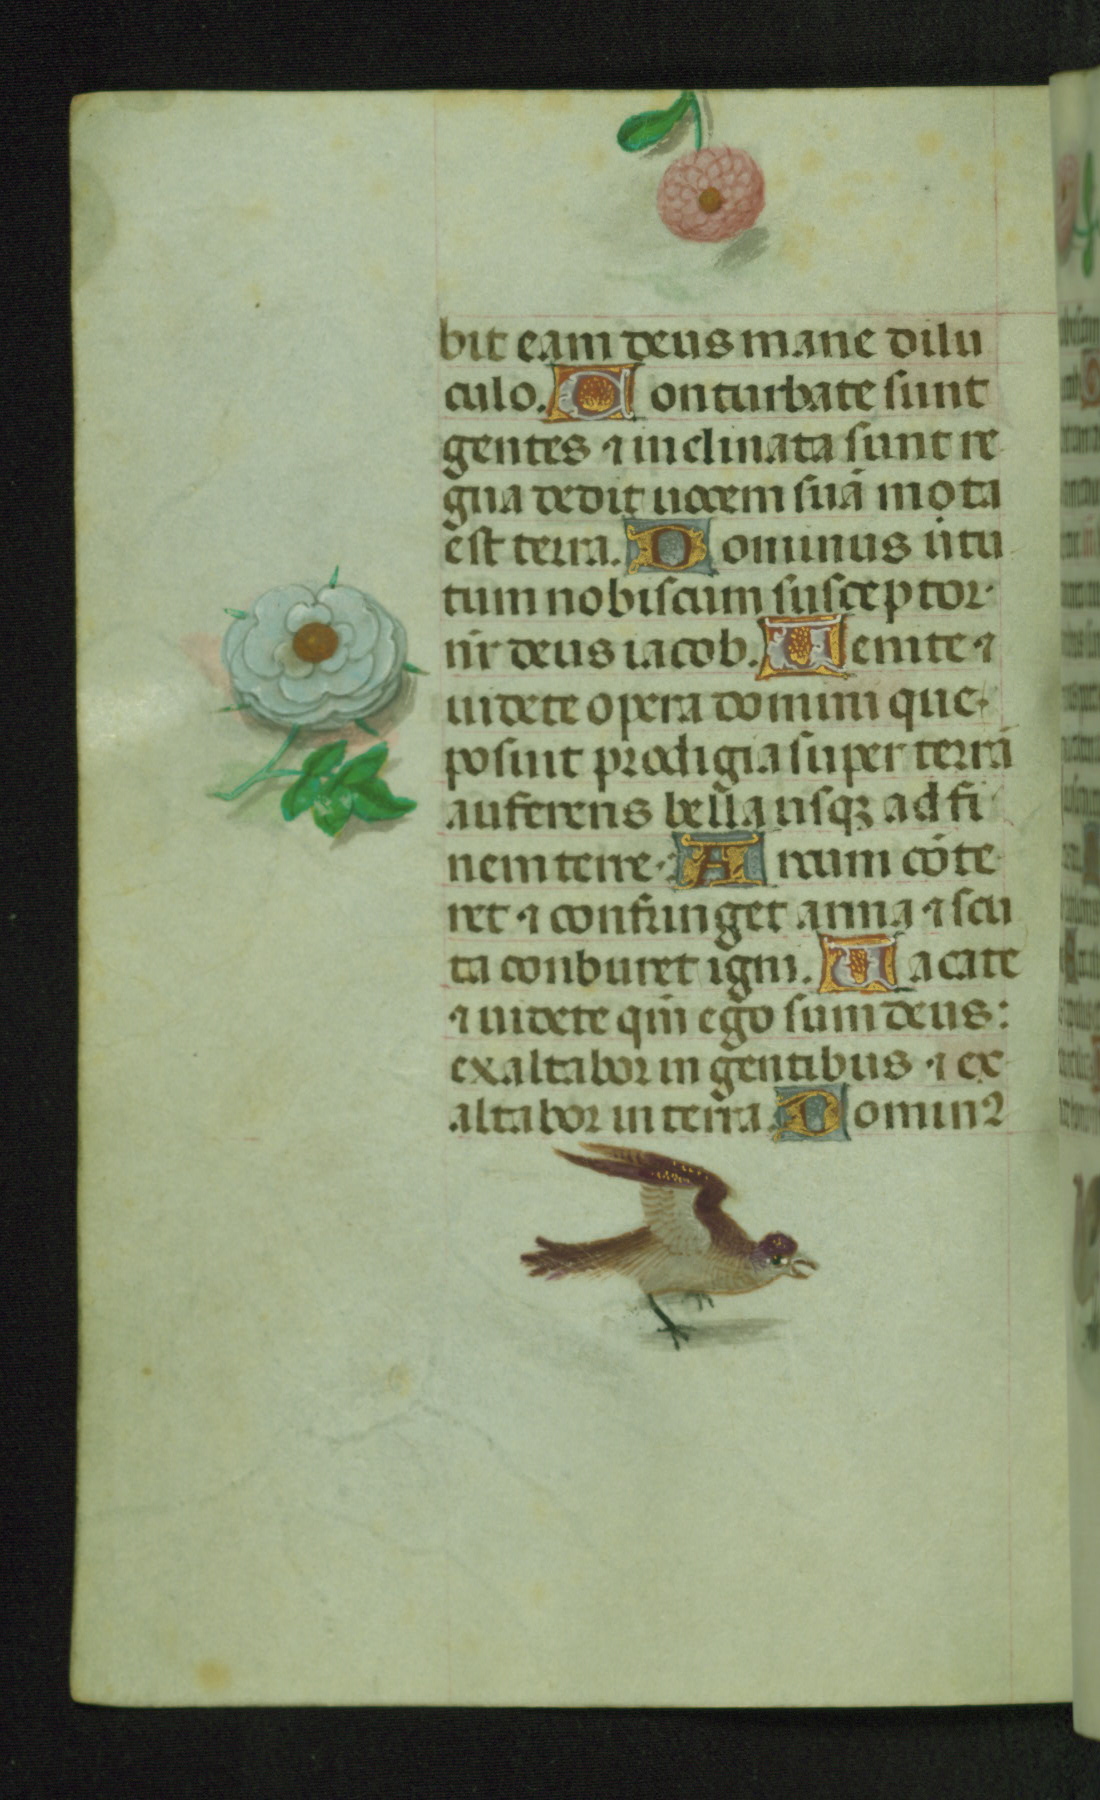 bit eam deus mane dilu
culo. Conturbate sunt
gentes ⁊ inclinata sunt re
gna dedit uocem suā mota
est terra. Dominus uirtu
tum nobiscum susceptor
nr̄ deus iacob. Uenite ⁊
uidete opera domini que
posuit prodigia super terrā
auferens bella usqꝫ ad fi
nem terre. Arcum cōte
ret ⁊ confringet arma ⁊ scu
ta conburet igni. Uacate
⁊ uidete qm̄ ego sum deus:
exaltabor in gentibus ⁊ ex
altabor in terra. Dominꝰ